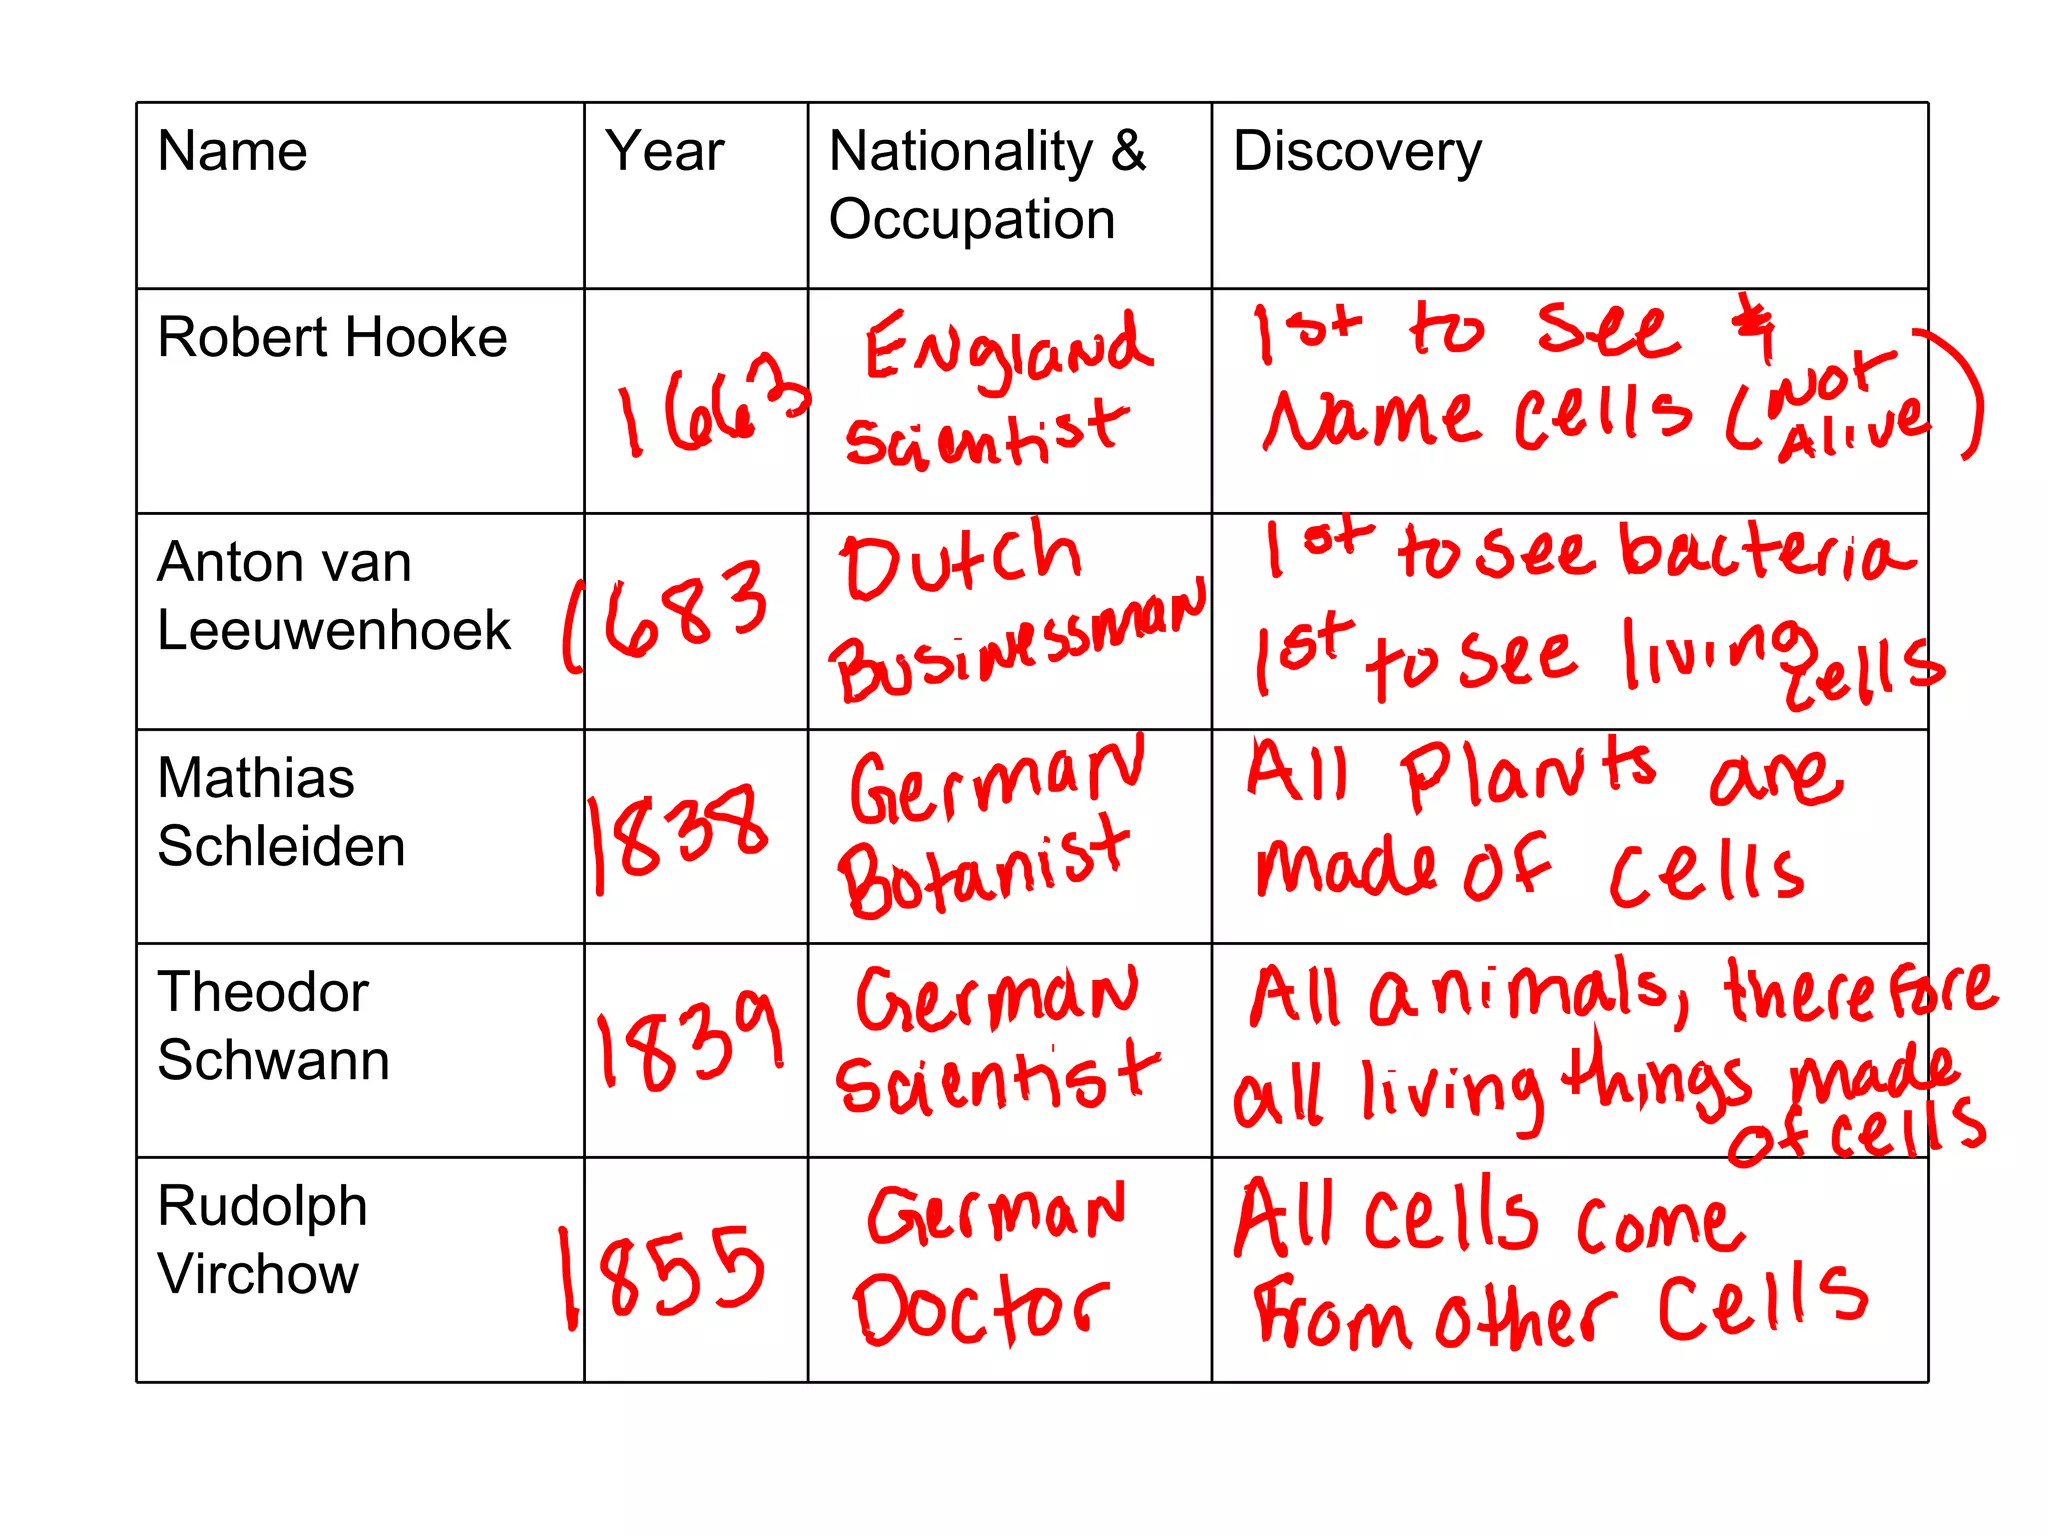 Name Year Nationality & Discovery
Occupation
Robert Hooke 1663 England 1st to see &
Scientist Name cells (Not Alive)
Anton van 1683 Dutch 1st to see bacteria
Leeuwenhoek Businessman 1st to see living cells
Mathias 1838 German All Plants are
Schleiden Botanist made of cells
Theodor 1839 German All animals, therefore
Schwann Scientist all living things made
of cells
Rudolph 1855 German All cells come
Virchow Doctor From other cells